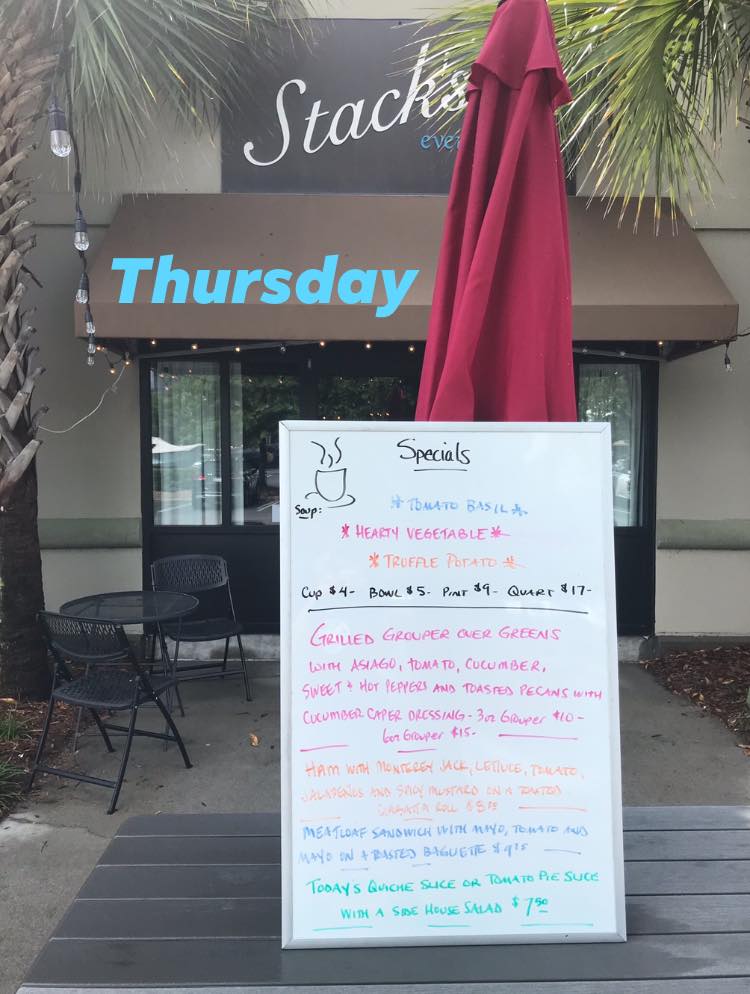 Stack's
Thursday
Specials
Soup:
* TOMATO BASIL *
* HEARTY VEGETABLE *
* TRUFFLE POTATO *
CUP $4- BOWL $5- PINT $9- QUART $17-
GRILLED GROUPER OVER GREENS
WITH ASIAGO, TOMATO, CUCUMBER,
SWEET & HOT PEPPERS AND TOASTED PECANS WITH
CUCUMBER CAPER DRESSING - 3oz GROUPER $10-
6oz GROUPER $15-
HAM WITH MONTEREY JACK, LETTUCE, TOMATO,
JALAPEÑOS AND SPICY MUSTARD ON A TOASTED
CIABATTA ROLL
MEATLOAF SANDWICH WITH MAYO, TOMATO AND
MAYO ON A TOASTED BAGUETTE
TODAY'S QUICHE SLICE OR TOMATO PIE SLICE
WITH A SIDE HOUSE SALAD $7.50